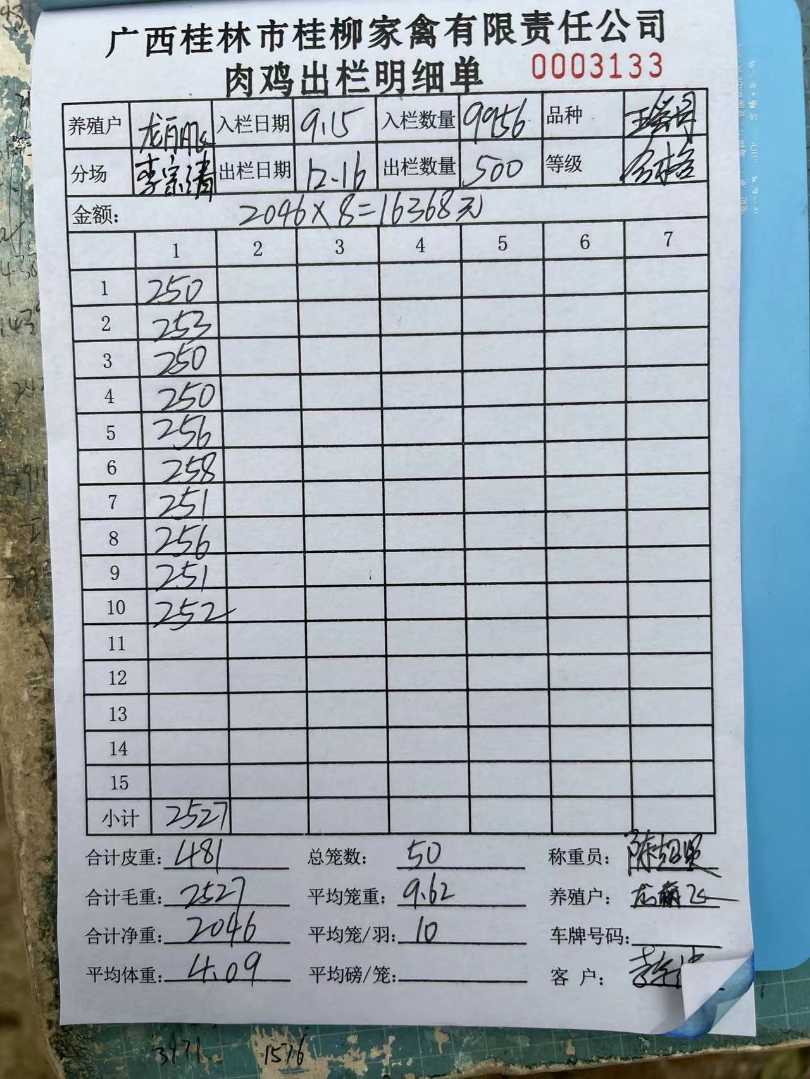 广西桂林市桂柳家禽有限责任公司
肉鸡出栏明细单 0003133
养殖户 入栏日期 9.15 入栏数量 9956 品种
分场 李宗清 出栏日期 12-16 出栏数量 500 等级 合格
金额: 2046×8=16368元
1 2 3 4 5 6 7
1 250
2 253
3 250
4 250
5 256
6 258
7 251
8 256
9 251
10 252
11
12
13
14
15
小计 2527
合计皮重: 481 总笼数: 50 称重员:
合计毛重: 2527 平均笼重: 9.62 养殖户:
合计净重: 2046 平均笼/羽: 10 车牌号码:
平均体重: 4.09 平均磅/笼: 客 户:
3971 1576